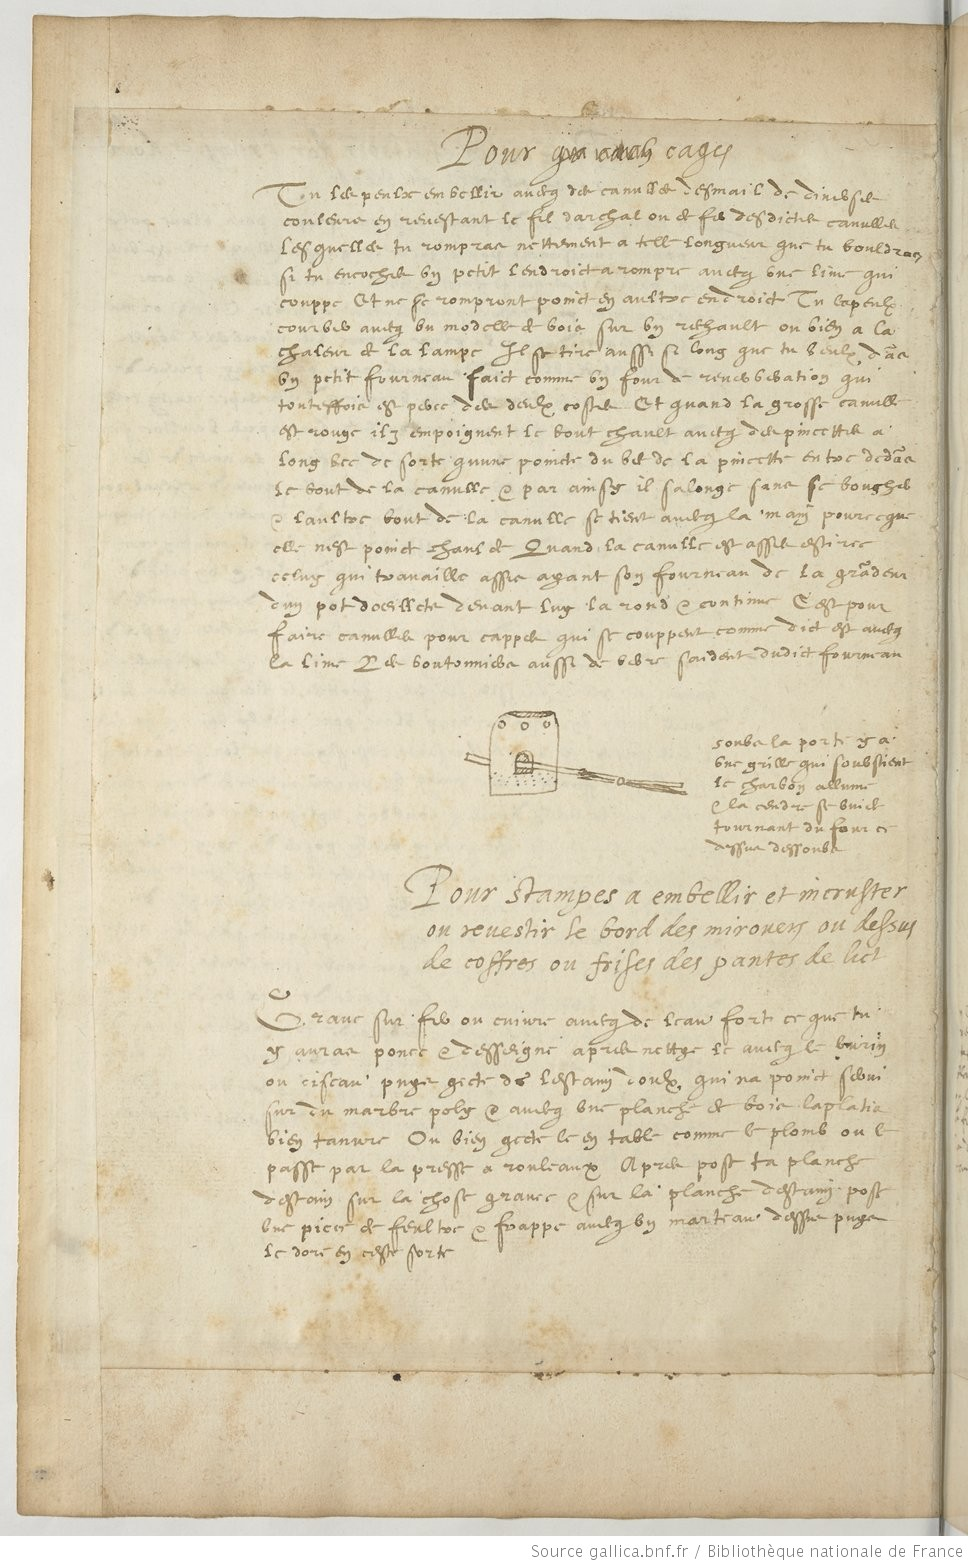 Pour cages
Tu les peulx embellir avecq des canulles desmail de diverses
couleurs en revestant le fil darchal ou de fer desdictes canulles
Lesquelles tu rompras nettement a telle longueur que tu vouldras
si tu encoches un petit lendroict a rompre avecq une lime qui
couppe Et ne se rompront poinct en aultre endroict Tu le peulx
courber avecq un modelle de bois sur un rechault ou bien a la
chaleur de la lampe Il se tire aussi si long que tu veulx dans
un petit fourneau faict comme un four de reverberation qui
touteffois est perce des deulx costes Et quand la grosse canulle
est rouge ilz empoignent le bout chault avecq des pincettes a
long bec de sorte quune poincte du bec de la pincette entre dedans
le bout de la canulle & par ainsy il salonge sans se boucher
& laultre bout de la canulle se tient avecq la main pourceque
elle nest poinct chaulde Quand la canulle est asses estiree
celuy qui travaille assis ayant son fourneau de la grandeur
dun pot doeillets devant luy la rond & continue Cest pour
faire canulles pour cappes qui se couppent comme dict est avecq
la lime Les boutonniers aussi de verre saident dudict fourneau
soubs la porte y a
une grille qui soubstient
le charbon allume
& la cendre se vuide
tournant du four ce
dessus dessoubs
Pour stampes a embellir et incruster
ou revestir le bord des mirouers ou dessus
de coffres ou frises des pantes de lict
Grave sur fer ou cuivre avecq de leau fort ce que tu
y auras ponce & desseigne apres nettye le avecq le burin
ou ciseau puys gecte de lestaim doulx qui na poinct servi
sur du marbre poly & avecq une planche de bois laplatis
bien tanvre Ou bien gecte le en table comme le plomb ou le
passe par la presse a rouleaux Apres pose ta planche
destain sur la chose gravee & sur la planche destaim pose
une piece de feultre & frappe avecq un marteau dessus puys
le dore en ceste sorte
Source gallica.bnf.fr / Bibliothèque nationale de France